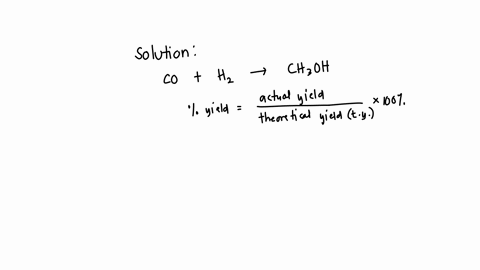 Solution:
CO + H2 → CH3OH
% yield = actual yield / theoretical yield (t.y.) × 100%